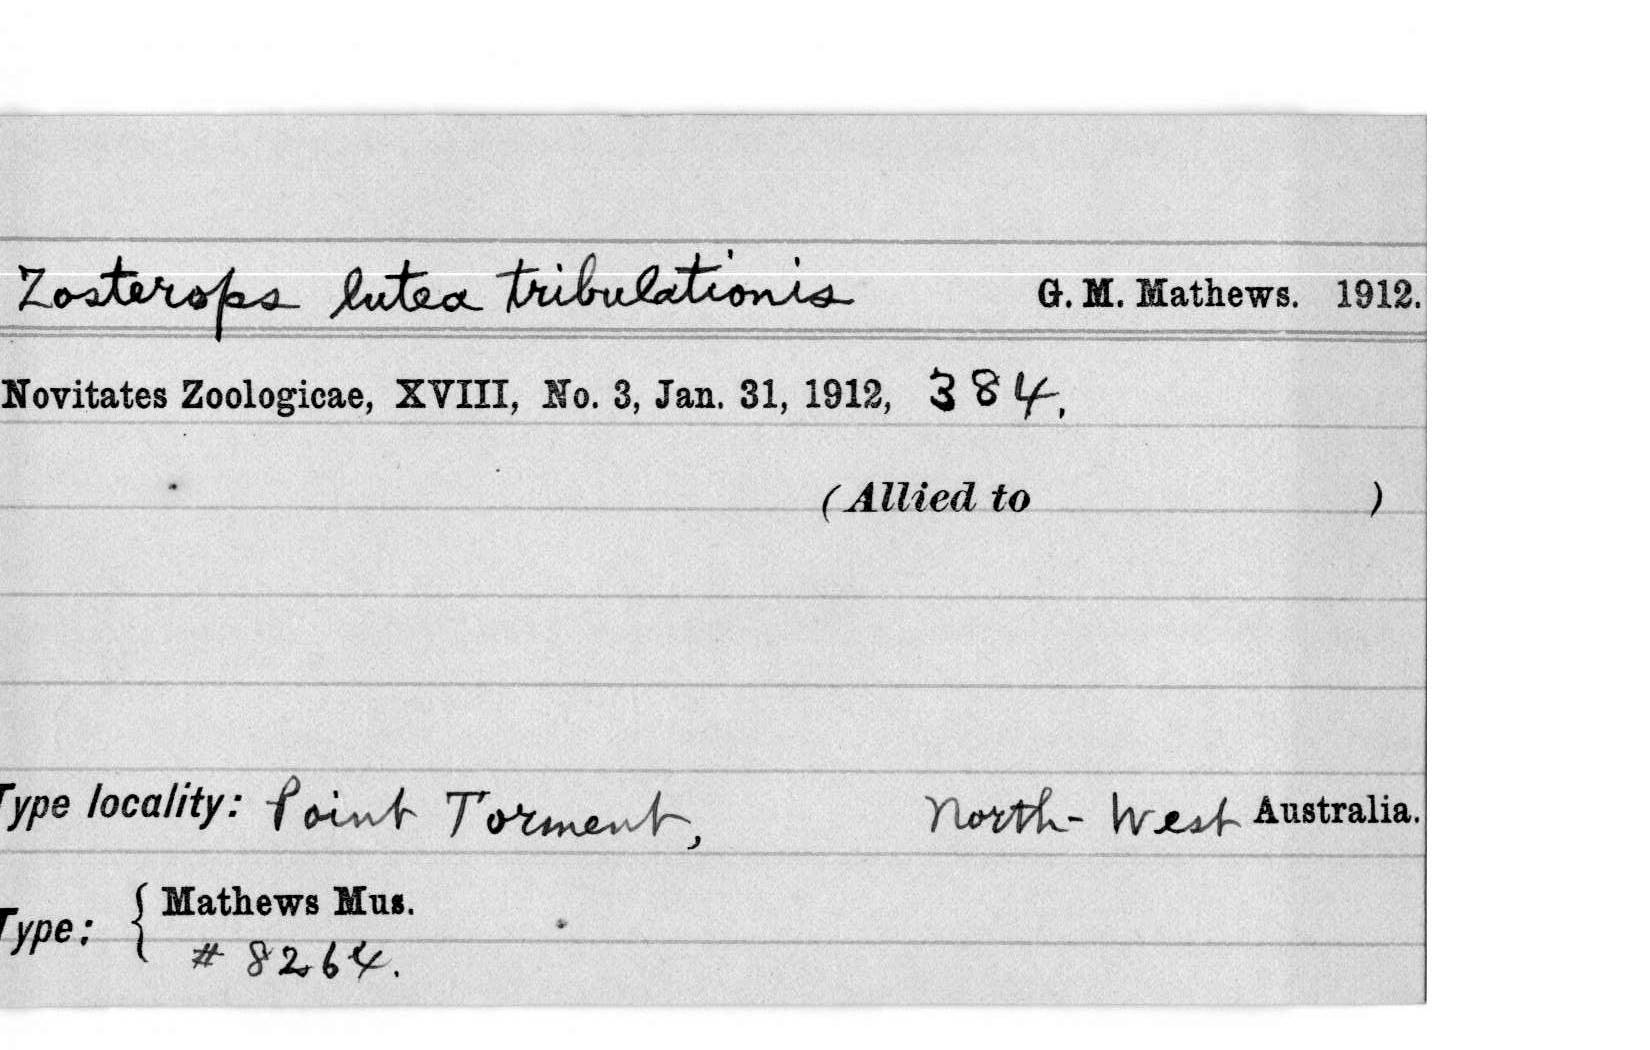 Zosterops lutea tribulationis G. M. Mathews. 1912.
Novitates Zoologicae, XVIII, No. 3, Jan. 31, 1912, 384.
(Allied to )
Type locality: Point Torment, North-West Australia.
Type: { Mathews Mus.
# 8264.